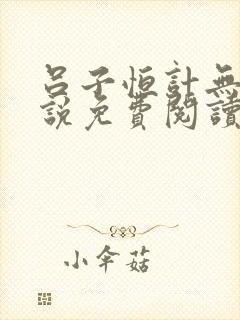 呂子恒計無
說免費閱讀
小傘菇